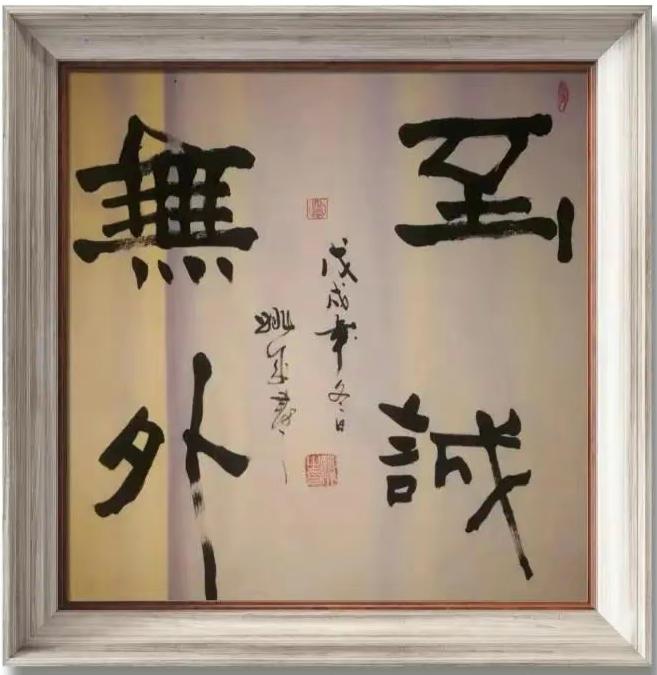 至誠
無外
戊戌年冬日